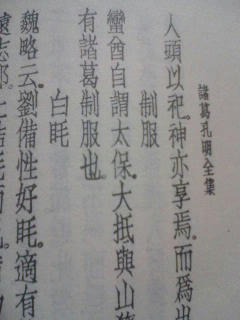 諸葛孔明全集
人頭以祀。神亦享焉。而爲也
制服
蠻酋自謂太保。大抵與山
有諸葛制服也。
白眊
魏略云。劉備性好眊。適有
遠志郎。